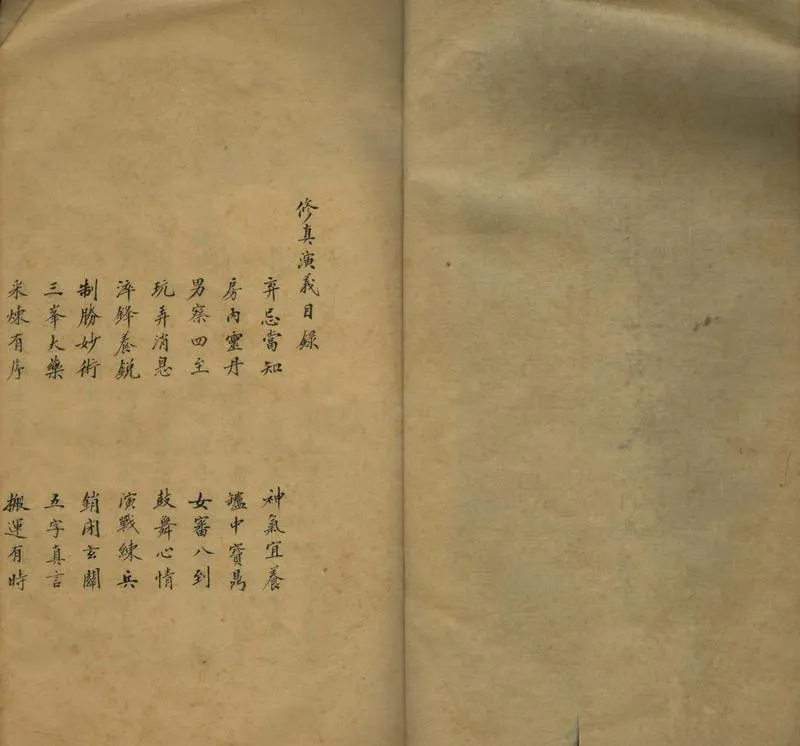 修真演義目錄
弃忌當知
神氣宜養
房內靈丹
爐中寶鼎
男察四至
女審八到
玩弄消息
鼓舞心情
淬鋒養銳
演戰練兵
制勝妙術
鎖閉玄關
三峯大藥
五字真言
采煉有序
搬運有時